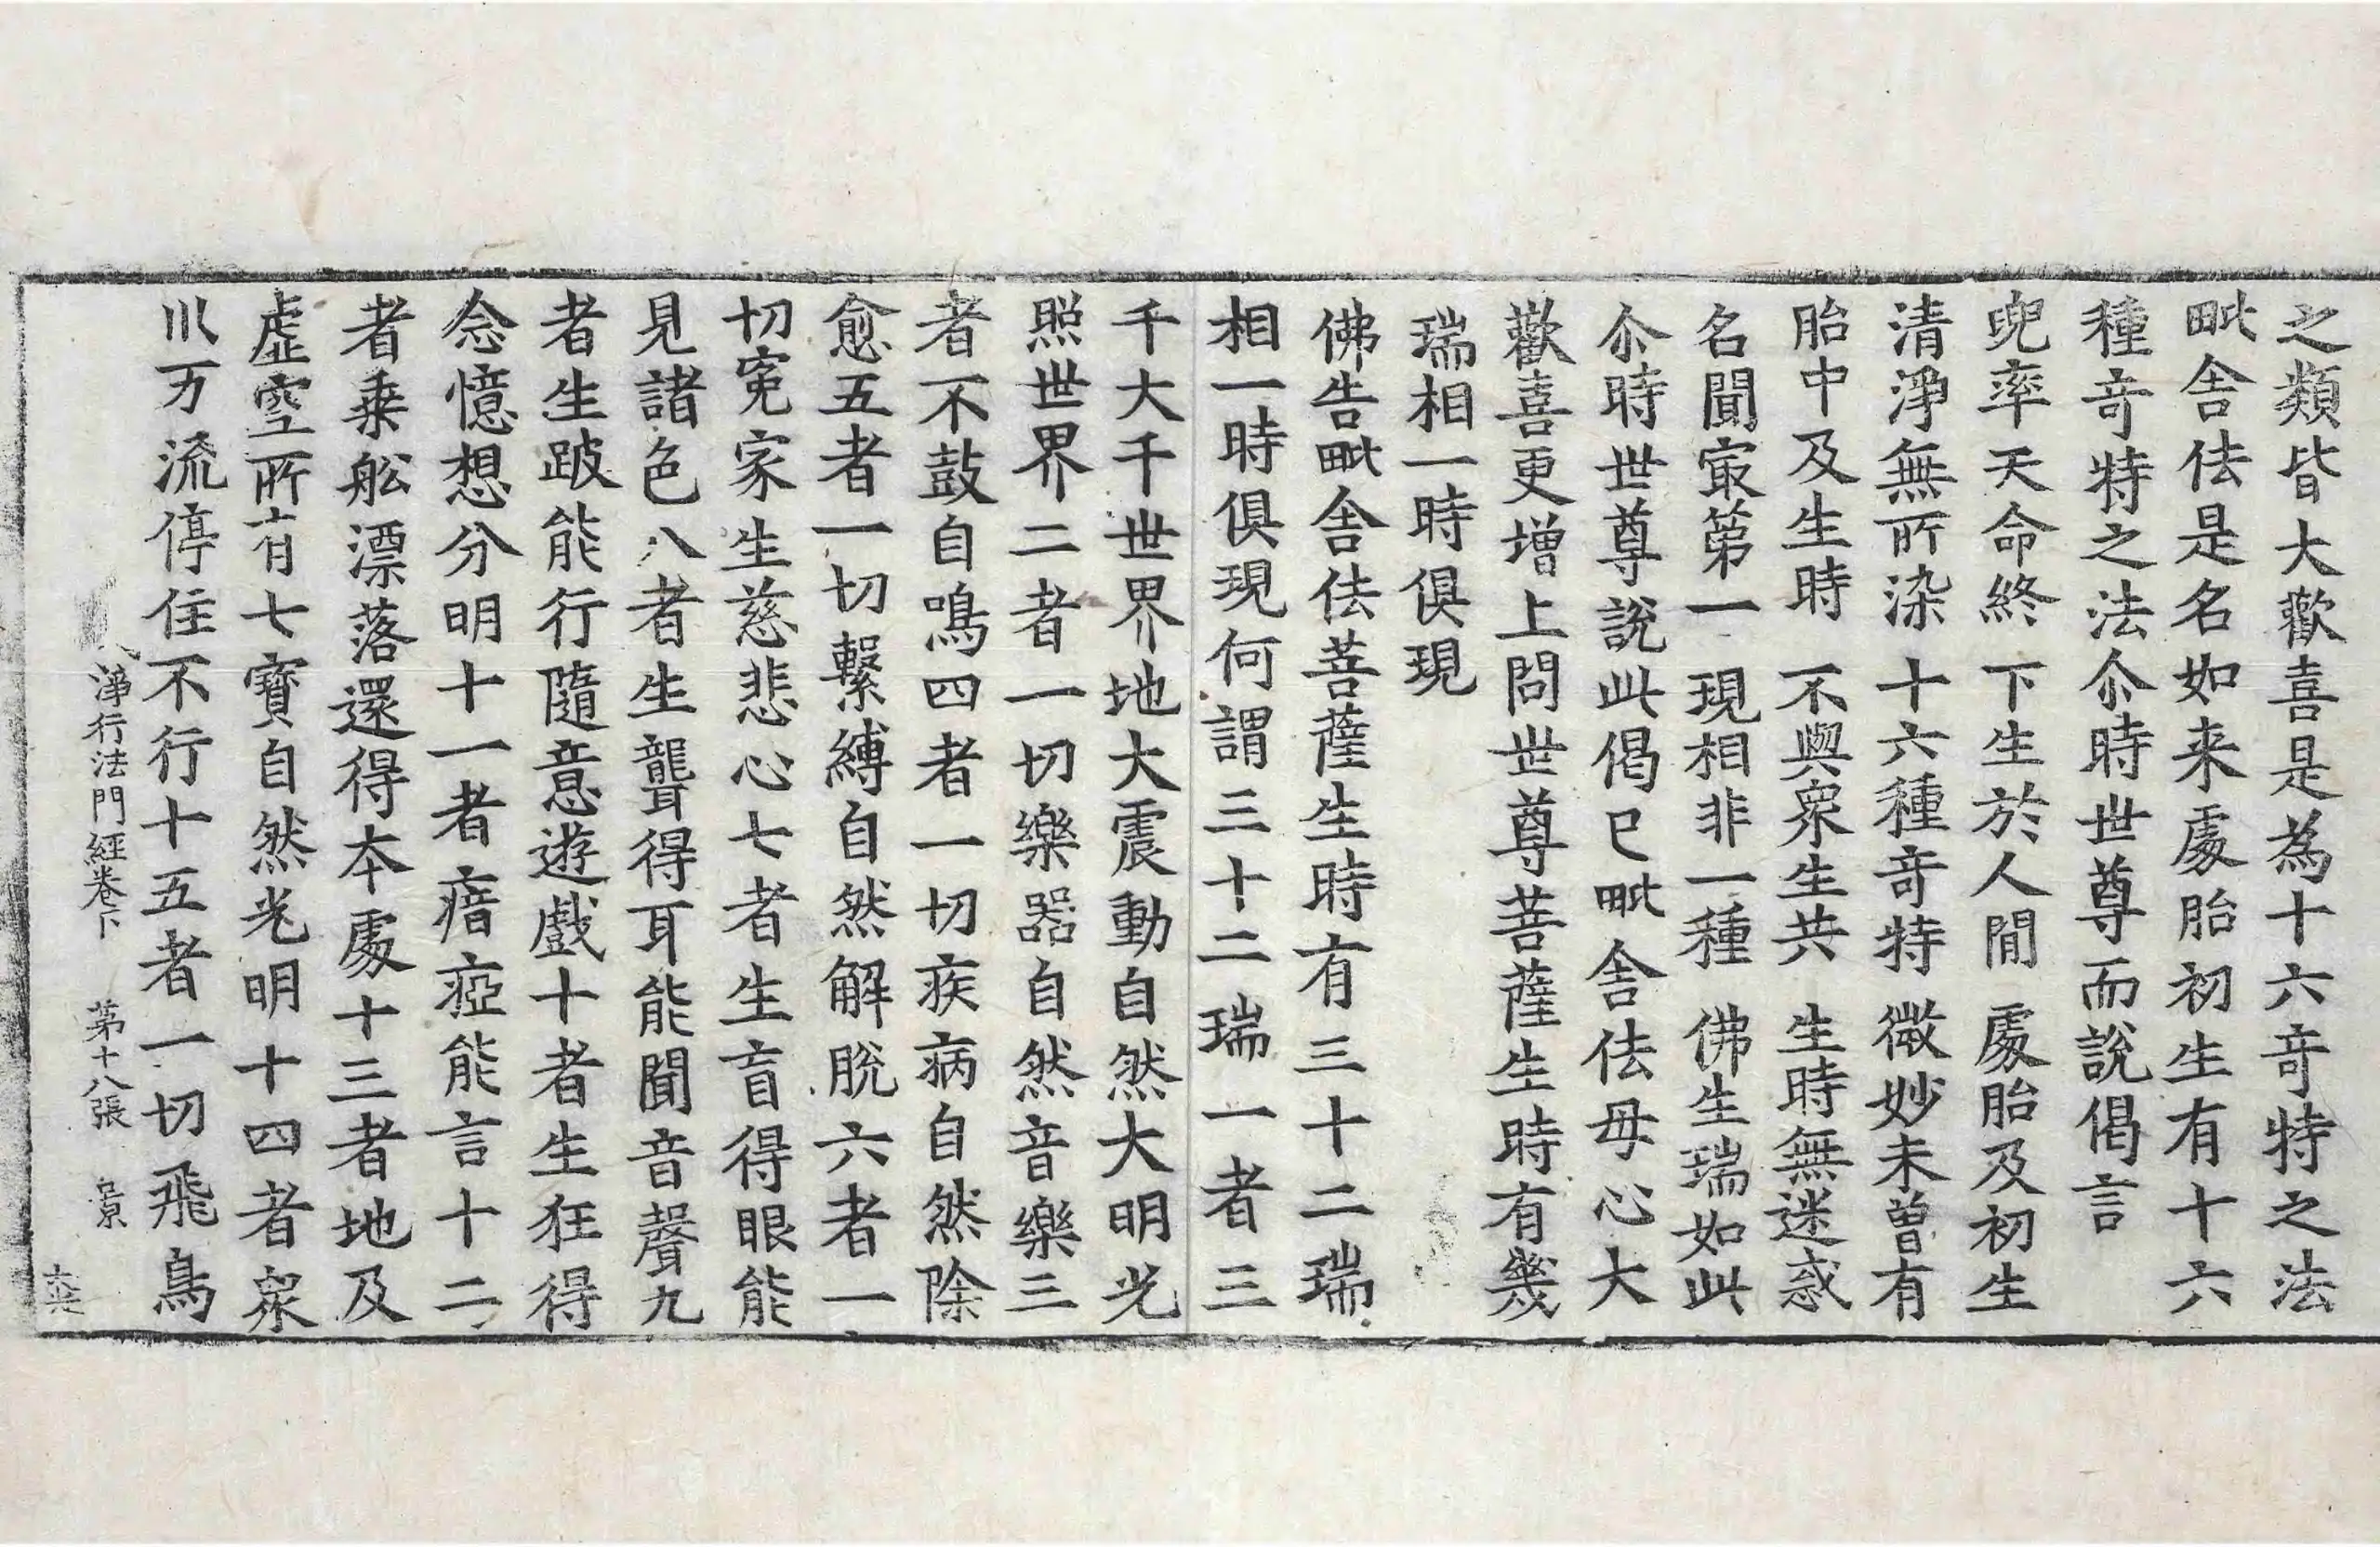 之類皆大歡喜是為十六竒特之法
毗舍佉是名如来處胎初生有十六
種竒特之法尒時世尊而說偈言
兜率天命終 下生於人閒 處胎及初生
清淨無所染 十六種竒特 微妙未曾有
胎中及生時 不與衆生共 生時無迷惑
名聞㝡第一 現相非一種 佛生瑞如此
尒時世尊說此偈已毗舍佉母心大
歡喜更增上問世尊菩薩生時有幾
瑞相一時俱現
佛告毗舍佉菩薩生時有三十二瑞
相一時俱現何謂三十二瑞一者三
千大千世界地大震動自然大明光
照世界二者一切樂器自然音樂三
者不鼓自鳴四者一切疾病自然除
愈五者一切繫縛自然解脫六者一
切寃家生慈悲心七者生盲得眼能
見諸色八者生聾得耳能聞音聲九
者生跛能行隨意遊戲十者生狂得
念憶想分明十一者瘖瘂能言十二
者乗舩漂落還得本處十三者地及
虛空所有七寶自然光明十四者衆
川万流停住不行十五者一切飛鳥
淨行法門經卷下 第十八張 景